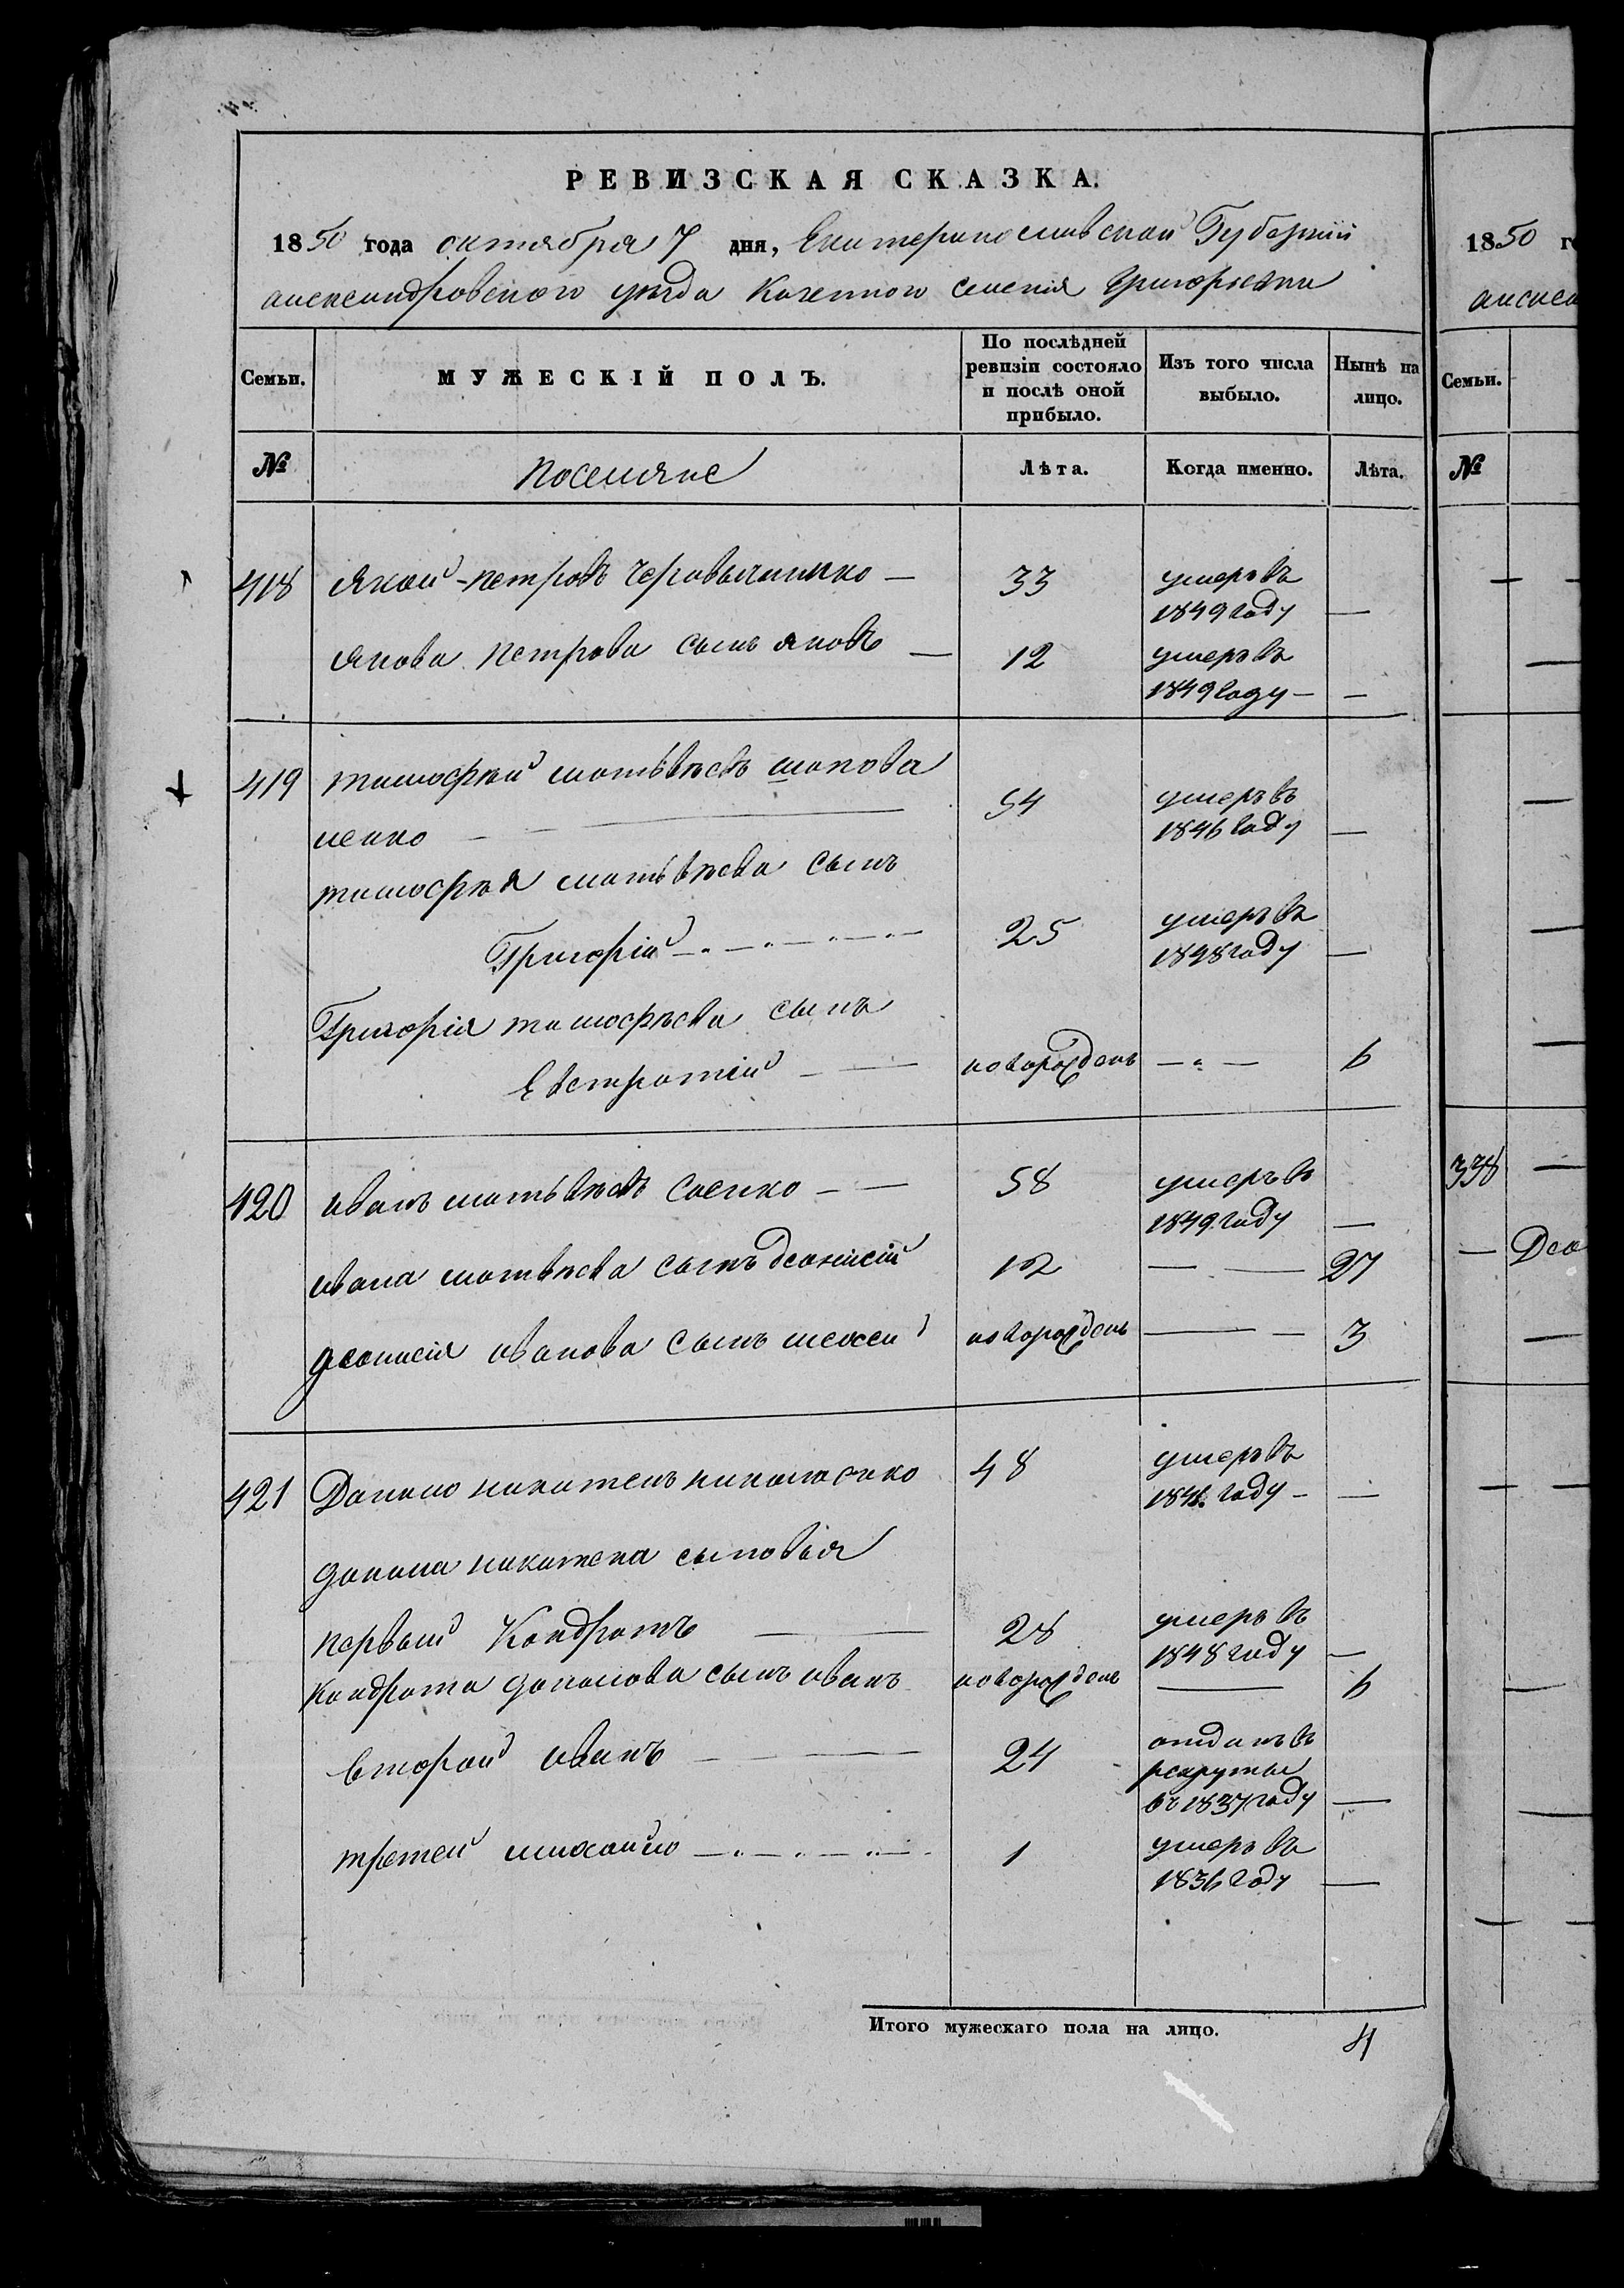 РЕВИЗСКАЯ СКАЗКА.
1850 года октября 7 дня, Екатеринославской Губернии
александровского уезда Казенного селения Григорьевки
Семьи.
МУЖЕСКІЙ ПОЛЪ.
По послѣдней
ревизіи состояло
и послѣ оной
прибыло.
Изъ того числа
выбыло.
Нынѣ на
лицо.
№
поселяне
Лѣта.
Когда именно.
Лѣта.
418 Яков петровъ — 33 умеръ въ
1849 году —
якова петрова сынъ яковъ — 12 умеръ въ
1849 году — —
419 тимофей матвѣевъ шапова
ленко — 54 умеръ въ
1846 году —
тимофея матвѣева сынъ
Григорій — 25 умеръ въ
1848 году —
Григорія тимофѣева сынъ
Евстратій — новорожденъ — 6
420 иванъ матвѣевъ саенко — 58 умеръ въ
1849 году —
ивана матвѣева сынъ деонисій 12 — 27
деонисія иванова сынъ новорожденъ — 3
421 Данило никитенъ николаенко 48 умеръ въ
году — —
данила никитена сыновья
первый Кондратъ — 28 умеръ въ
1848 году —
Кондрата данилова сынъ иванъ новорожденъ — 6
второй иванъ — 24 отданъ въ
рекруты
въ 1837 году —
третей михайло — 1 умеръ въ
1836 году —
Итого мужескаго пола на лицо. 4
1850 г
Семьи.
№
338 —
— Део